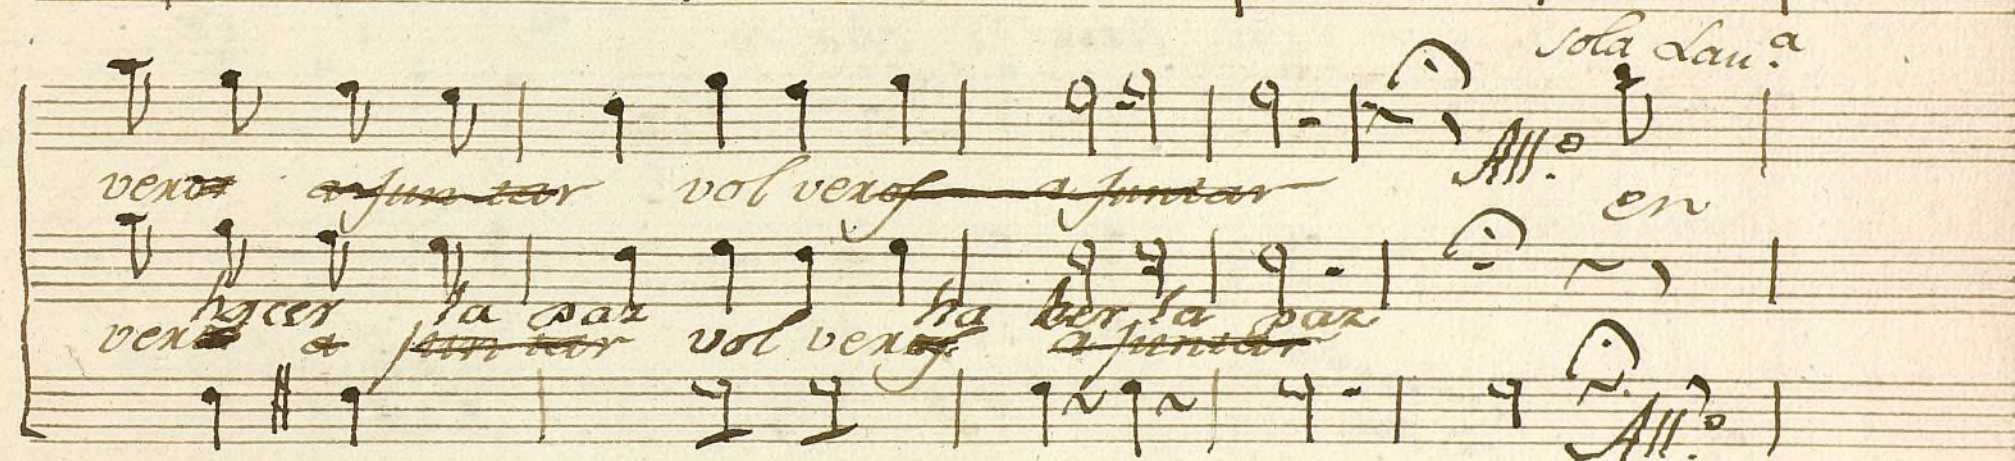 sola Lau.ª
All.º
veros a juntar vol veros a juntar en
hacer la paz ha cer la paz
veros a juntar vol veros a juntar
All.º